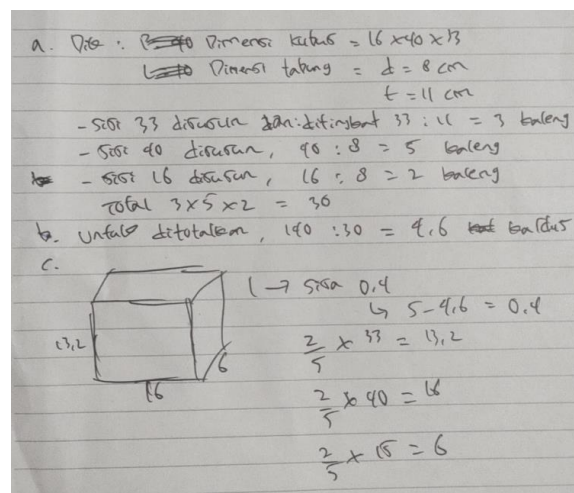 a. Dik : Dimensi kubus = 16 x 40 x 33
Dimensi tabung = d = 8 cm
t = 11 cm
- sisi 33 disusun dan ditingkat 33 : 11 = 3 kaleng
- sisi 40 disusun, 40 : 8 = 5 kaleng
- sisi 16 disusun, 16 : 8 = 2 kaleng
Total 3 x 5 x 2 = 30
b. Untuk ditotalkan, 140 : 30 = 4,6 kardus
c.
1 → sisa 0,4
↳ 5 - 4,6 = 0,4
13,2
2/5 x 33 = 13,2
6
16
2/5 x 40 = 16
2/5 x 15 = 6